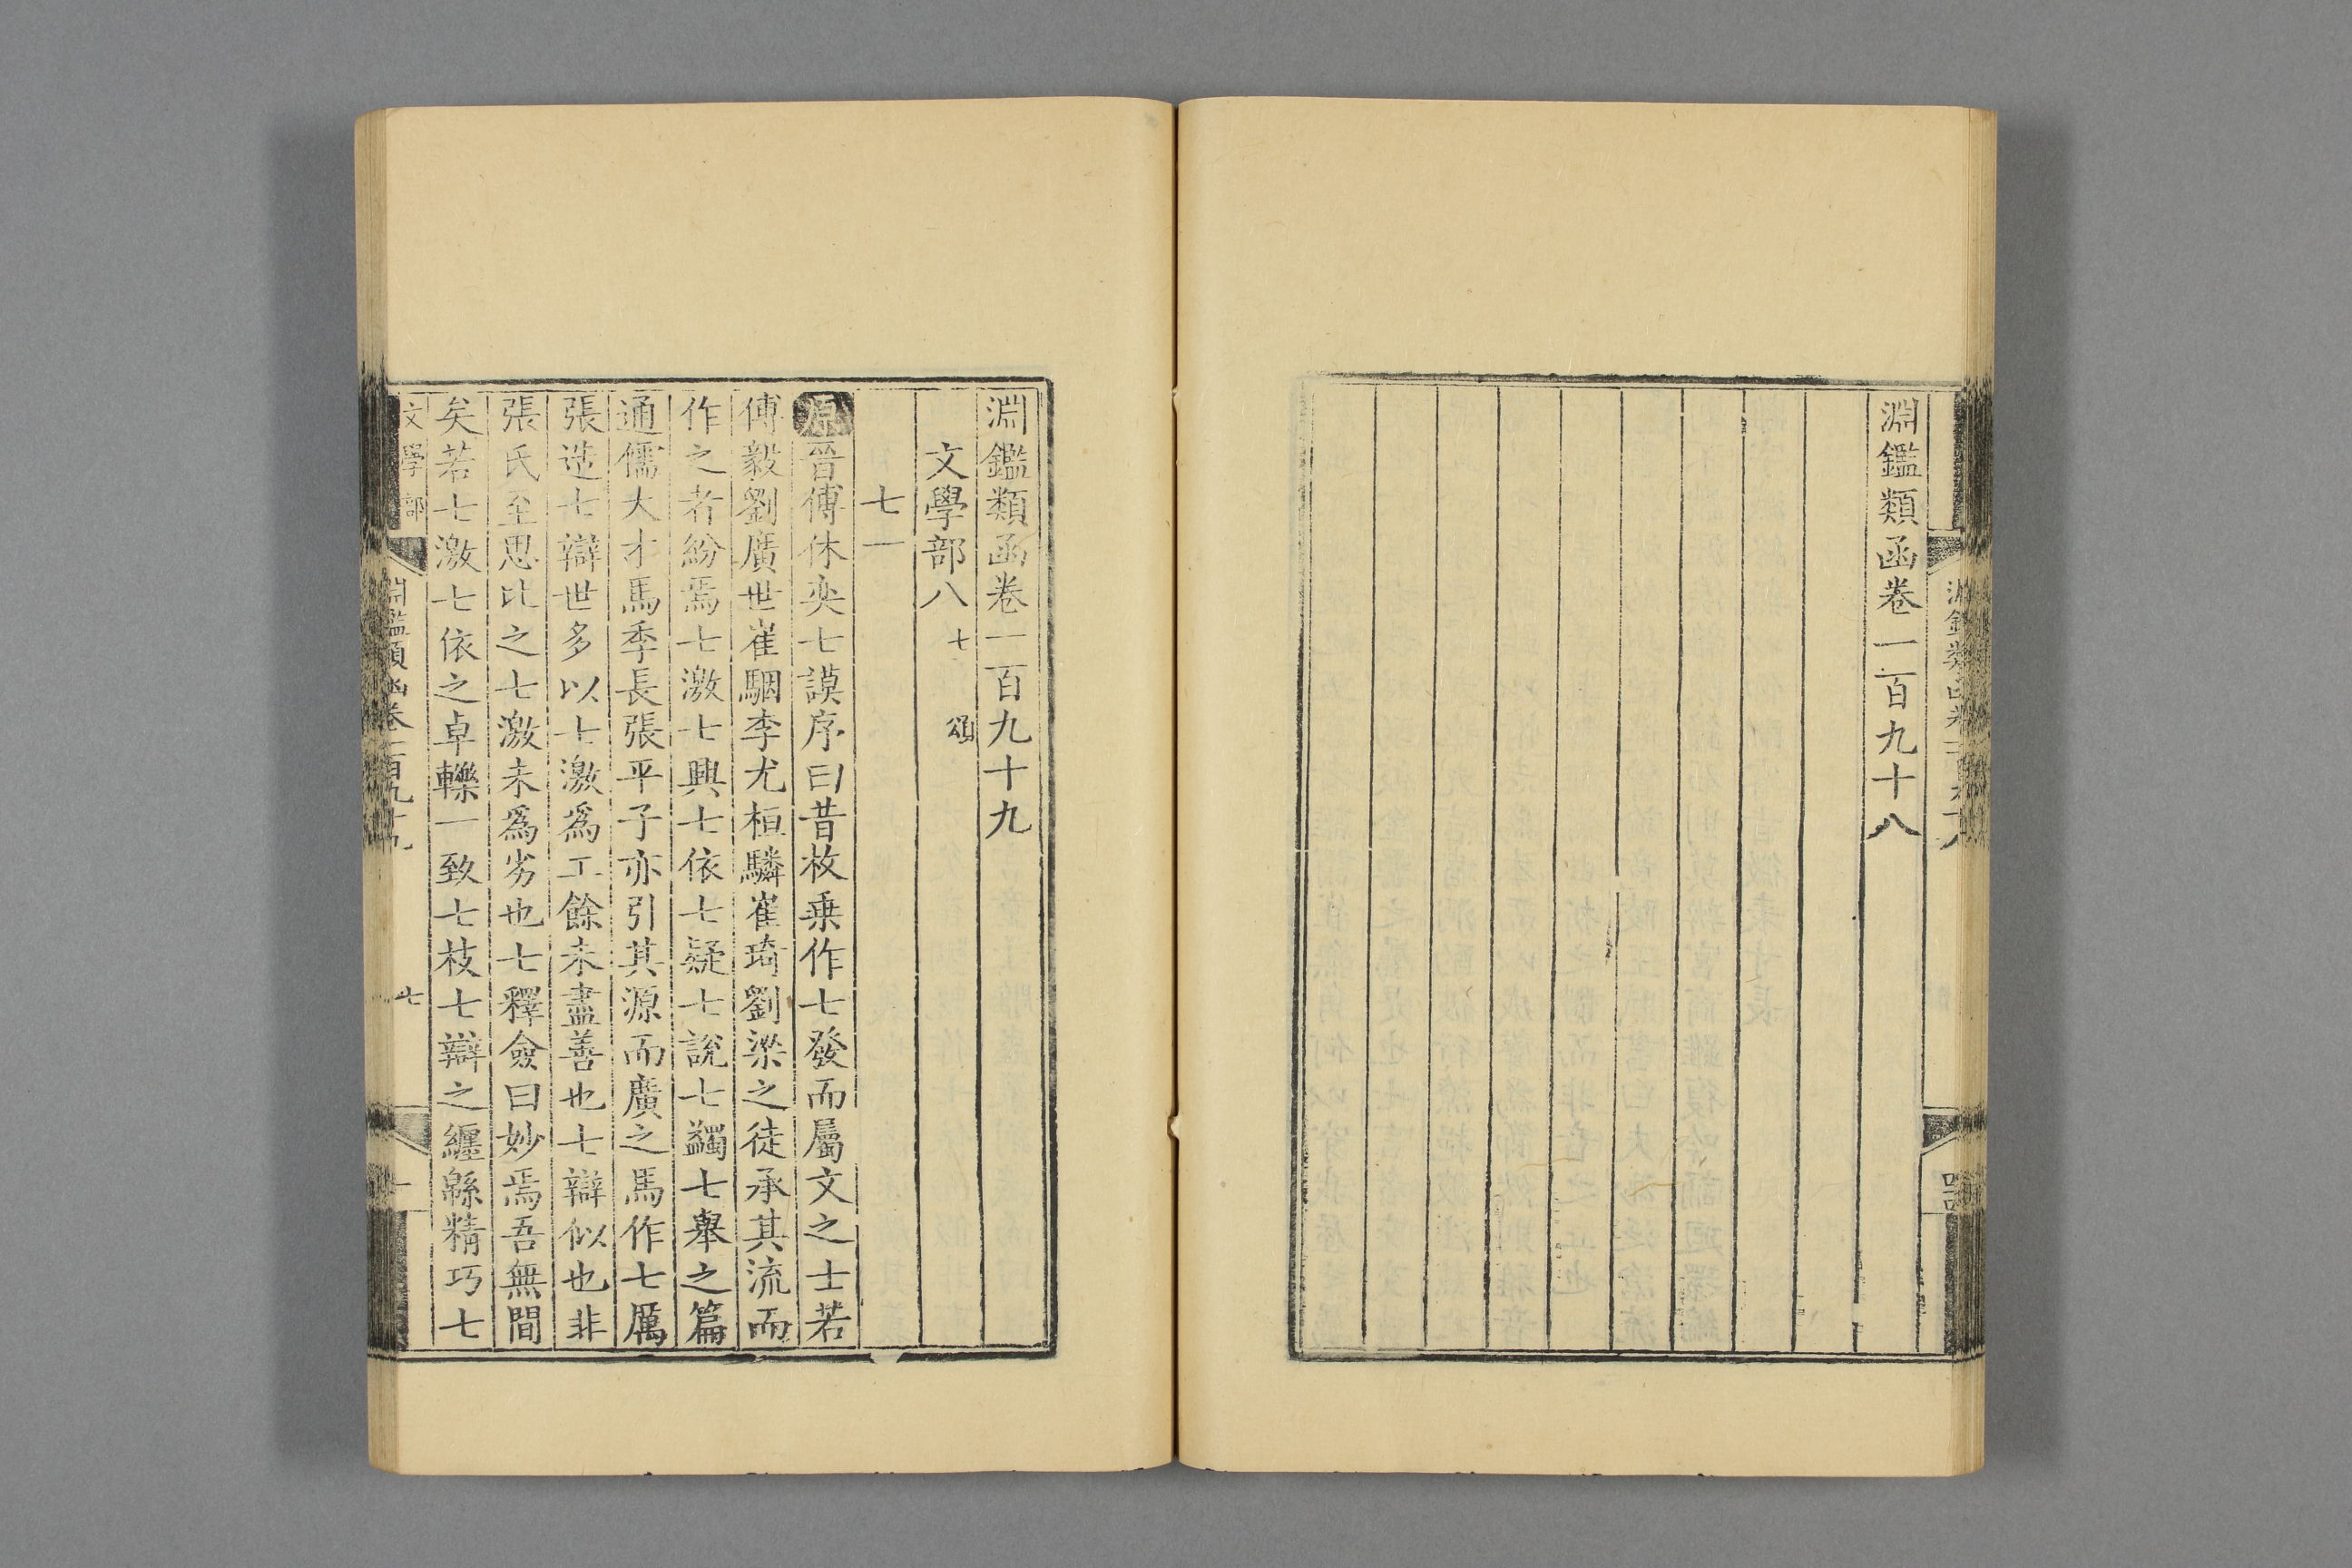 淵鑑類函卷一百九十八
淵鑑類函卷一百九十九
文學部八 七 頌
七一
原晉傅休奕七謨序曰昔枚乗作七發而屬文之士若
傅毅劉廣世崔駰李尤桓驎崔琦劉梁之徒承其流而
作之者紛焉七激七興七依七疑七說七蠲七舉之篇
通儒大才馬季長張平子亦引其源而廣之馬作七厲
張造七辯世多以七激爲工餘未盡善也七辯似也非
張氏至思比之七激未爲劣也七釋僉曰妙焉吾無間
矣若七激七依之卓轢一致七枝七辯之纏緜精巧七
文學部 淵鑑類函卷一百九十九 七 一